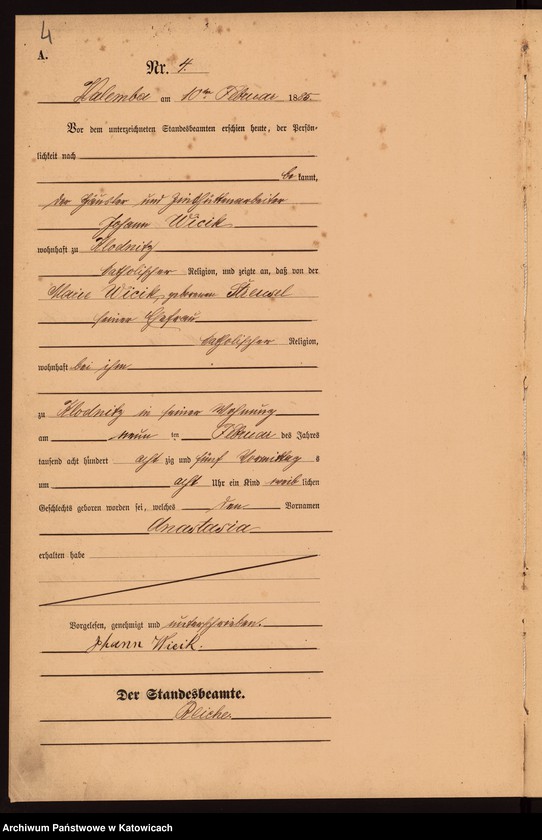 4
A.
Nr. 4.
Halemba am 10ten Februar 1885.
Vor dem unterzeichneten Standesbeamten erschien heute, der Persön-
lichkeit nach
be kannt,
der Häusler und Zinkhüttenarbeiter
Johann Wicik
wohnhaft zu Klodnitz
katholischer Religion, und zeigte an, daß von der
Marie Wicik, geborenen
seiner Ehefrau
katholischer Religion,
wohnhaft bei ihm
zu Klodnitz in seiner Wohnung
am neun ten Februar des Jahres
tausend acht hundert acht zig und fünf Vormittag s
um acht Uhr ein Kind weib lichen
Geschlechts geboren worden sei, welches den Vornamen
Anastasia
erhalten habe
Vorgelesen, genehmigt und unterschrieben.
Johann Wicik.
Der Standesbeamte.
Reiche.
Archiwum Państwowe w Katowicach